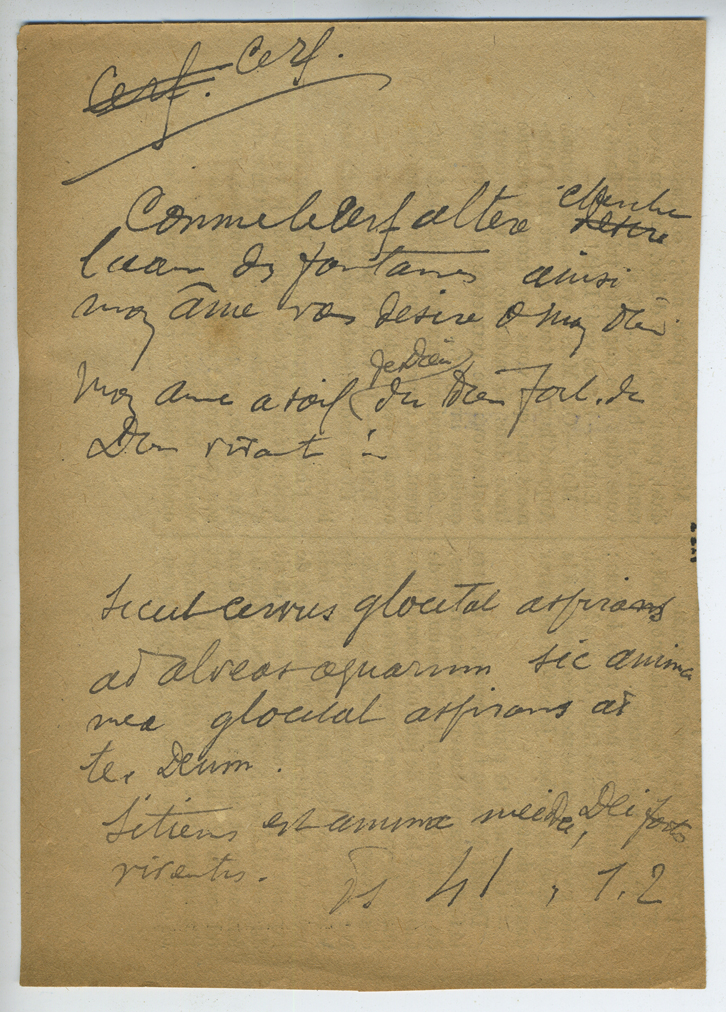 Cerf. Cerf.
Comme le Cerf altere cherche desire
l'eau des fontaines ainsi
mon âme vous desire o mon Dieu
de Dieu
Mon ame a soif du Dieu fort. du
Dieu vivant :
Sicut cervus glocitat aspirans
ad alveos aquarum sic anima
mea glocitat aspirans ad
te, Deum.
Sitiens est anima mea Dei, Dei fortis
viventis. Ps 41, 1.2